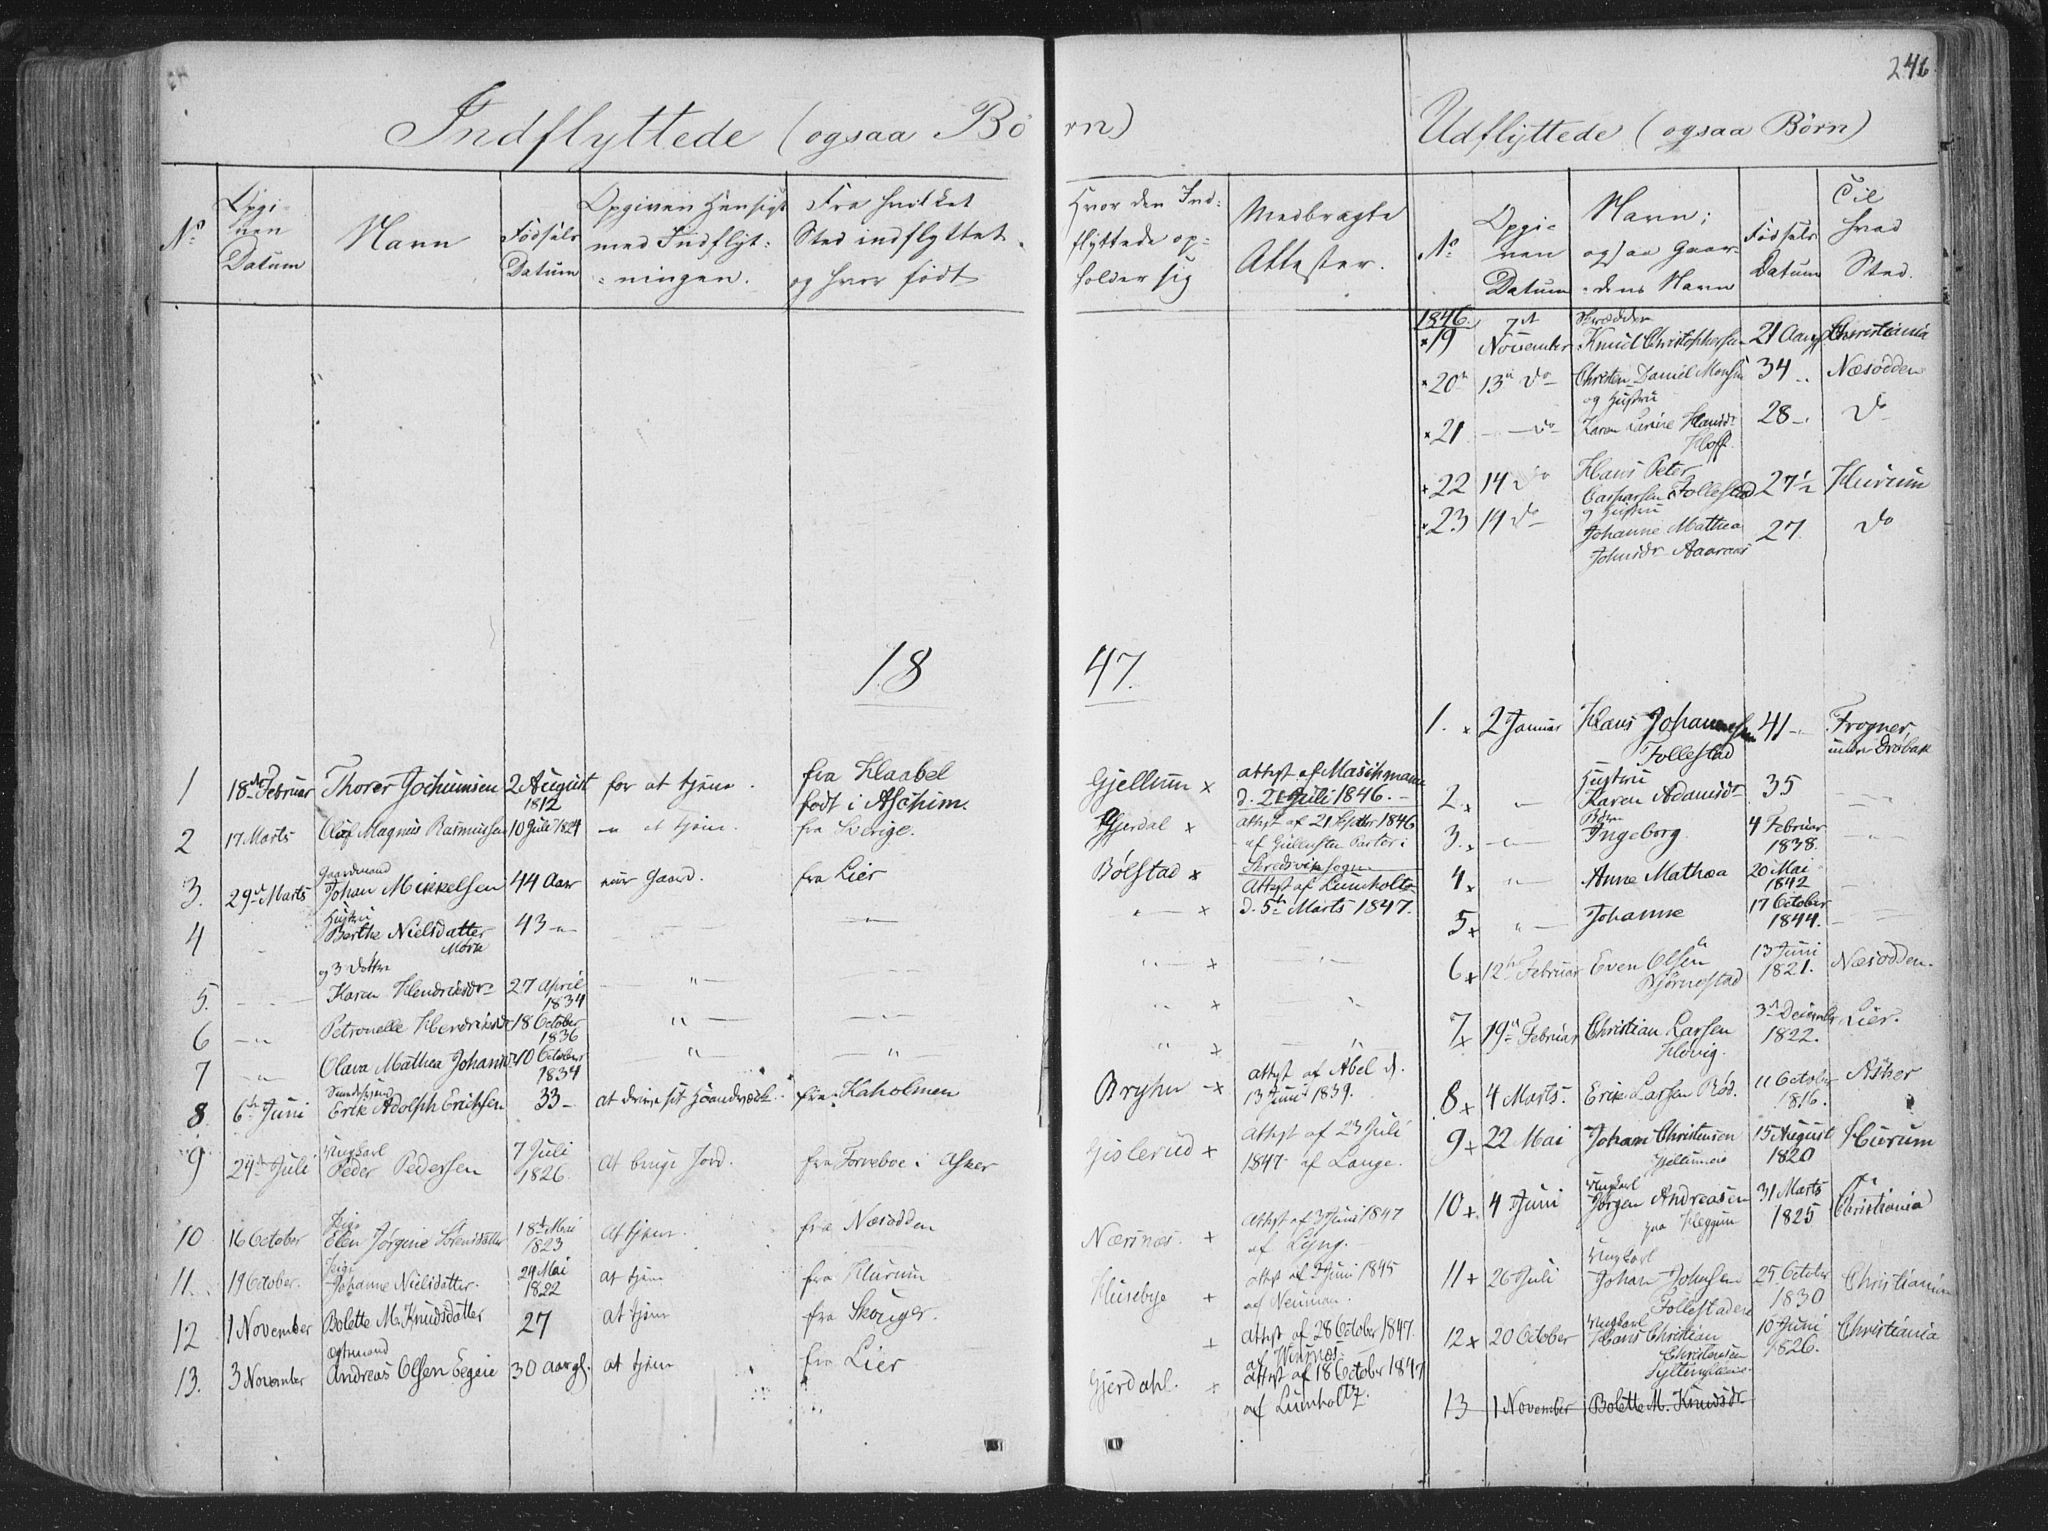 246
Indflyttede (ogsaa Børn)
Udflyttede (ogsaa Børn)
No
Opgi-
ven
Datum
Navn
Fødsels
Datum
Opgiven Hensigt
med Indflyt=
=ningen.
Fra hvilket
Sted indflyttet
og hvor født
Hvor den Ind=
flyttede op=
holder sig
Medbragte
Attester.
No
Opgi-
ven
Datum
Navn;
ogsaa Gaar-
dens Navn
Fødsels
Datum
Til
hvad
Sted.
1846.
19 7de November Skrædder Knud Christophersen 21 Aar Christiania
20 13de Do Christen Daniel Monsen 34 Næsodden
og Hustru
21 Do Karen Karine Hansdr Hoff 28 Do
22 14 Do Hans Peter Casparsen Follestad 27½ Hurum
og Hustru
23 14 Do Johanne Mathea Johnsdr Aaraas 27 Do
1847.
1 18de Februar Thorer Jochumsen 2 August 1812 for at tjene. fra Haabel født i Aschim Gjellum x attest af Maschmann d. 21 Juli 1846.
2 17 Marts Oluf Magnus Rasmussen 10 Juli 1824 at tjene. fra Sverige. Gjerdal x attest af 21 Septbr 1846 af Gullensten Pastor i Skredsvig Sogn
3. 29de Marts Gaardmand Johan Mikkelsen 44 Aar Gaard. fra Lier Bølstad x Attest af Lumholtz d. 5te Marts 1847.
4 Hustru Berthe Nielsdatter Mørk 43
og 3 Døttre
5. Karen Hendriksdr 27 April 1834
6 Petronelle Hendriksdr 18 October 1836
7 Olava Mathea Johansdr 10 October 1834
8 6te Juni Erik Adolph Erichsen 33 at drive sit Haandværk fra Kaholmen Bryhn x attest af Abel d. 13 Juni 1839.
9 24de Juli Ungkarl Peder Pedersen 7 Juli 1826 At bruge Jord. fra Torveboe i Asker Gislerud x Attest af 23 Juli 1847 af Lange.
10 16 October Pige Elen Jørgine Sørensdatter 18de Mai 1823 At tjene fra Næsodden Nærsnæs x Attest af 3 Juni 1847 af Lyng.
11. 19 October. Pige Johanne Nielsdatter. 24 Mai 1822 at tjene fra Hurum Husebye x attest af Juni 1845 af Neuman.
12 1 November Bolette M. Knudsdatter 27 at tjene fra Skouger. Attest af 28 October 1847
13. 3 November Ægtemand Andreas Olsen Egeie 30 Aar gl. at tjene fra Lier Gjerdahl. x attest af 18 October 1847 af Lumholtz.
1. x 2 Januar Hans Johannesen Follestad 41 Frogner, inden Drøbak
2. x Hustru Karen Adamsdr 35
3. x Børn Ingeborg 4 Februar 1838.
4 x Anne Mathea 20 Mai 1842
5 x Johanne 17 October 1844.
6 x 12te Februar Even Olsen Bjørnestad 13 Juni 1821. Næsodden.
7 x 19de Februar Christian Larsen Høvig. 3de December 1822. Lier.
8 x 4 Marts. Erik Larsen Rød. 11 October 1816. Asker
9 x 22 Mai Johan Christensen Gjellumeie 15 August 1820 Hurum
10 x 4 Juni Ungkarl Jørgen Andreasen paa Heggum 31 Marts 1825 Christiania
11 x 26 Juli Ungkarl Johan Johnsen Follestadeie 25 October 1830 Christiania
12 x 20 October Ungkarl Hans Christian Christensen 10 Juni 1826. Christiania
13 1 November Bolette M. Knudsdr.